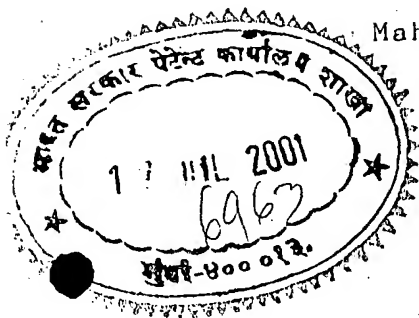 Mah
भारत सरकार पेटेन्ट कार्यालय शाखा
JUL 2001
मुंबई-४०० ०१३.